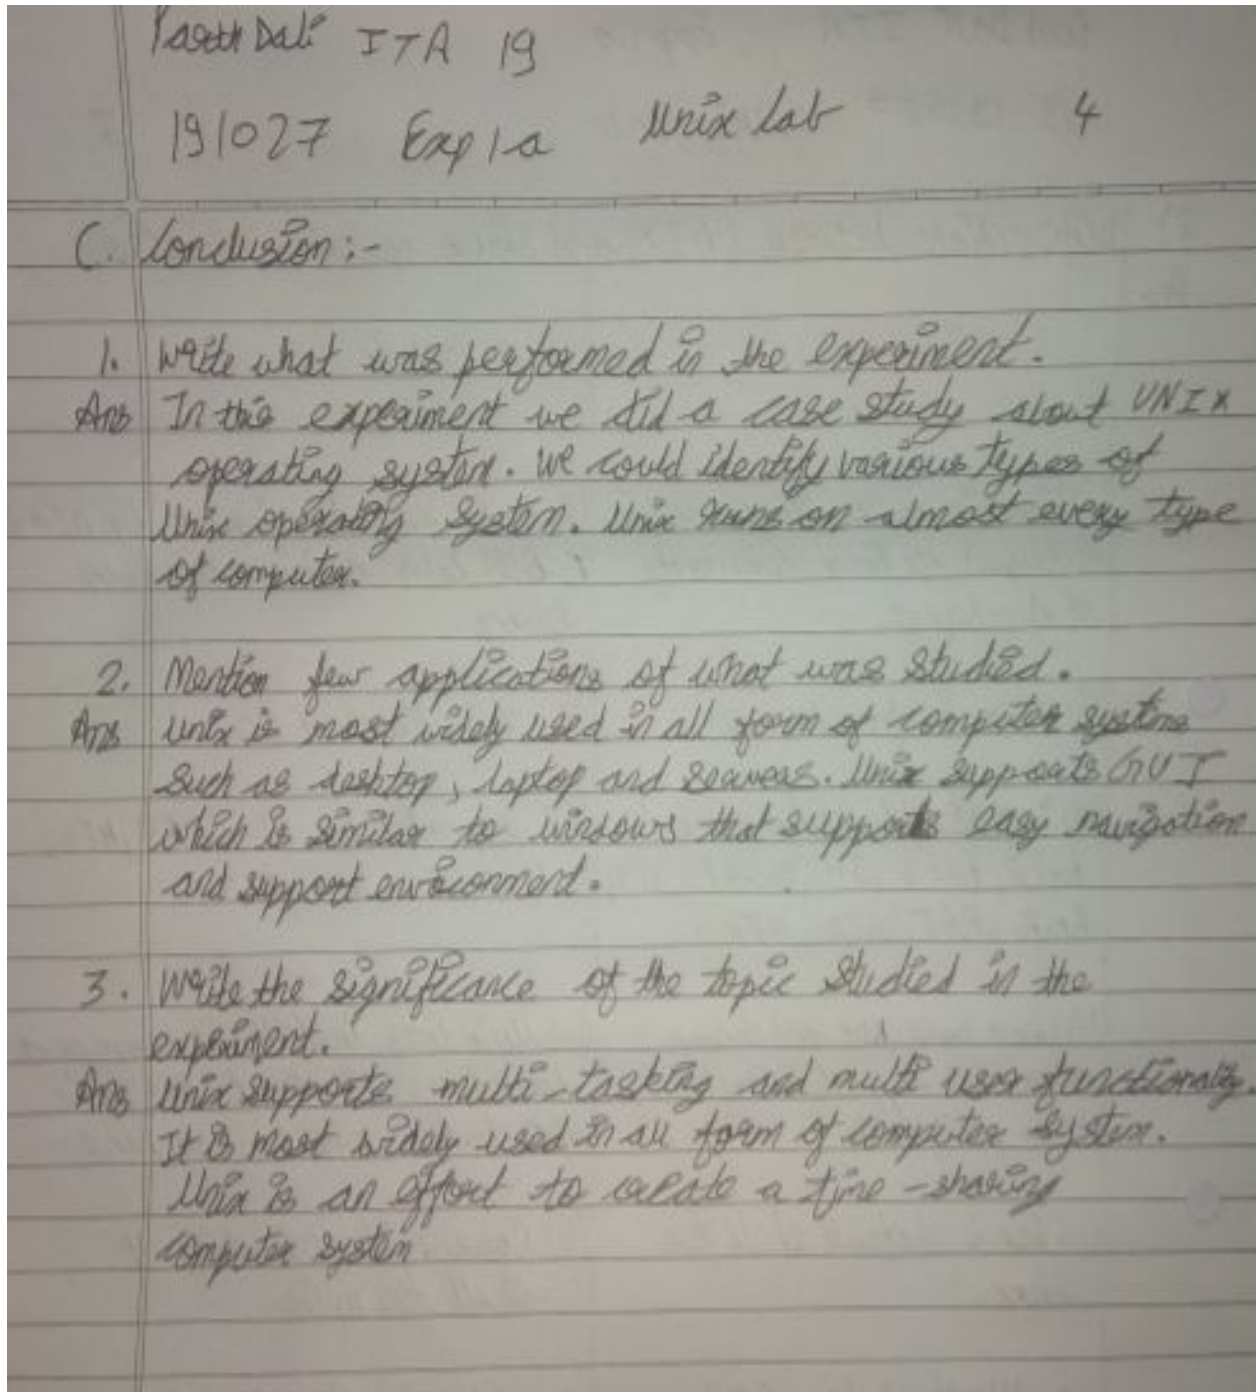 Parth Dali ITA 19
191027 Exp 1-a Unix Lab 4
C. Conclusion :-
1. Write what was performed in the experiment.
Ans In this experiment we did a case study about UNIX
operating system. We could identify various types of
Unix operating system. Unix runs on almost every type
of computer.
2. Mention few applications of what was studied.
Ans Unix is most widely used in all form of computer systems
such as desktop, laptop and servers. Unix supports GUI
which is similar to windows that supports easy navigation
and support environment.
3. Write the significance of the topic studied in the
experiment.
Ans Unix supports multi-tasking and multi user functionality.
It is most widely used in all form of computer system.
Unix is an effort to create a time-sharing
computer system